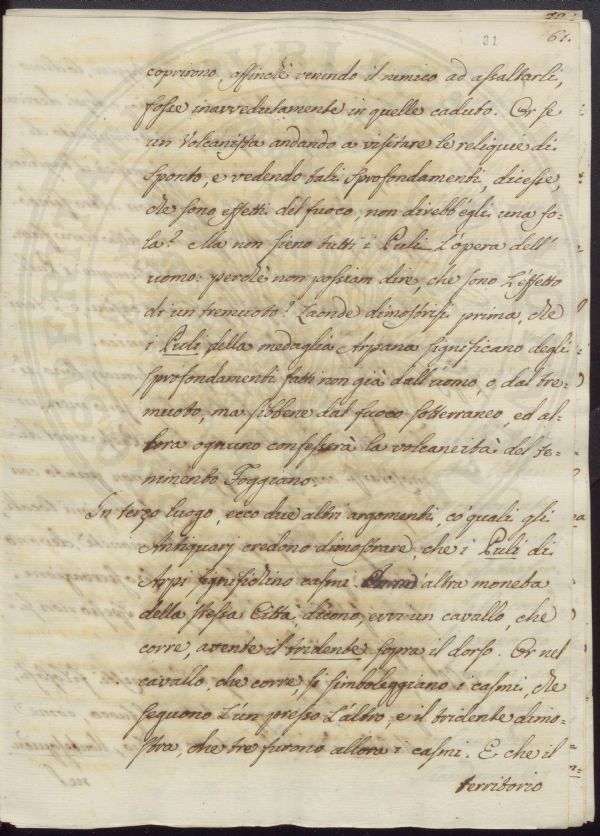 61.
31
coprirono affinchè venendo il nimico ad assaltarli,
fosse inavvedutamente in quelle caduto. Or se
un Volcanista andando a visitare le reliquie di
Siponto, e vedendo tali sprofondamenti, dicesse,
che sono effetti del fuoco, non direbb'egli una fo-
la? Ma non sieno tutti i Puli L'opera dell'
uomo: perchè non possiam dire, che sono L'effetto
di un tremuoto? Laonde dimostrisi prima, che
i Puli della medaglia Arpana significano degli
sprofondamenti fatti non già dall'uomo, o dal tre-
muoto, ma sibbene dal fuoco sotterraneo, ed al-
lora ognuno confesserà la volcaneità del te-
nimento Foggiano.
In terzo luogo, ecco due altri argomenti, co' quali gli
Antiquarj credono dimostrare, che i Puli di
Arpi significhino casmi. altra moneta
della stessa Città, dicono, evvi un cavallo, che
corre, avente il tridente sopra il dorso. Or nel
cavallo, che corre, si simboleggiano i casmi, che
seguono L'un presso L'altro, e il tridente dimo-
stra, che tre furono allora i casmi. E che il
territorio